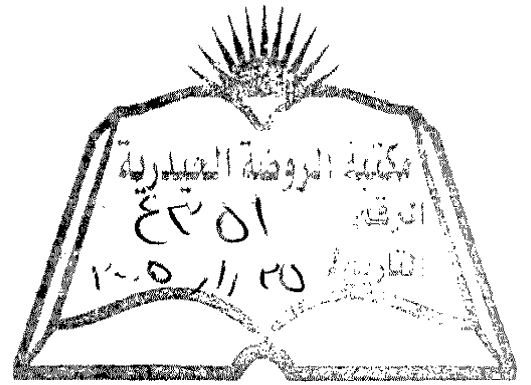 مكتبة الروضة الحيدرية
الرقم ٤٣٥١
التاريخ ٢٥ ٢٠٠٥